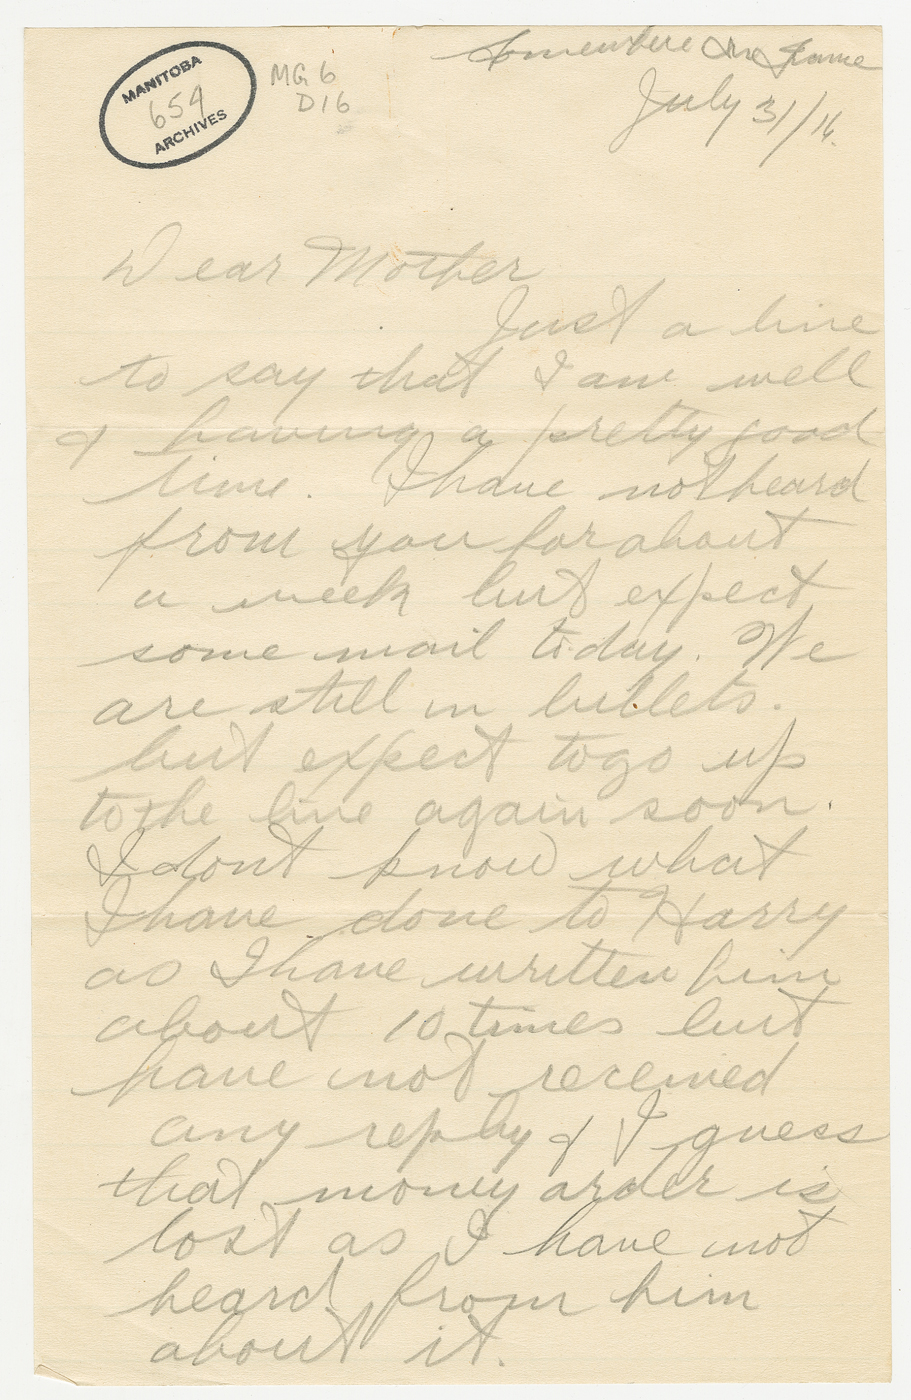 MANITOBA
654
ARCHIVES
MG 6
D16
Somewhere In France
July 31/16.
Dear Mother
Just a line
to say that I am well
& having a pretty good
time. I have not heard
from you for about
a week but expect
some mail today. We
are still in billets.
but expect to go up
to the line again soon.
I dont know what
I have done to Harry
as I have written him
about 10 times but
have not received
any reply & I guess
that money order is
lost as I have not
heard from him
about it.